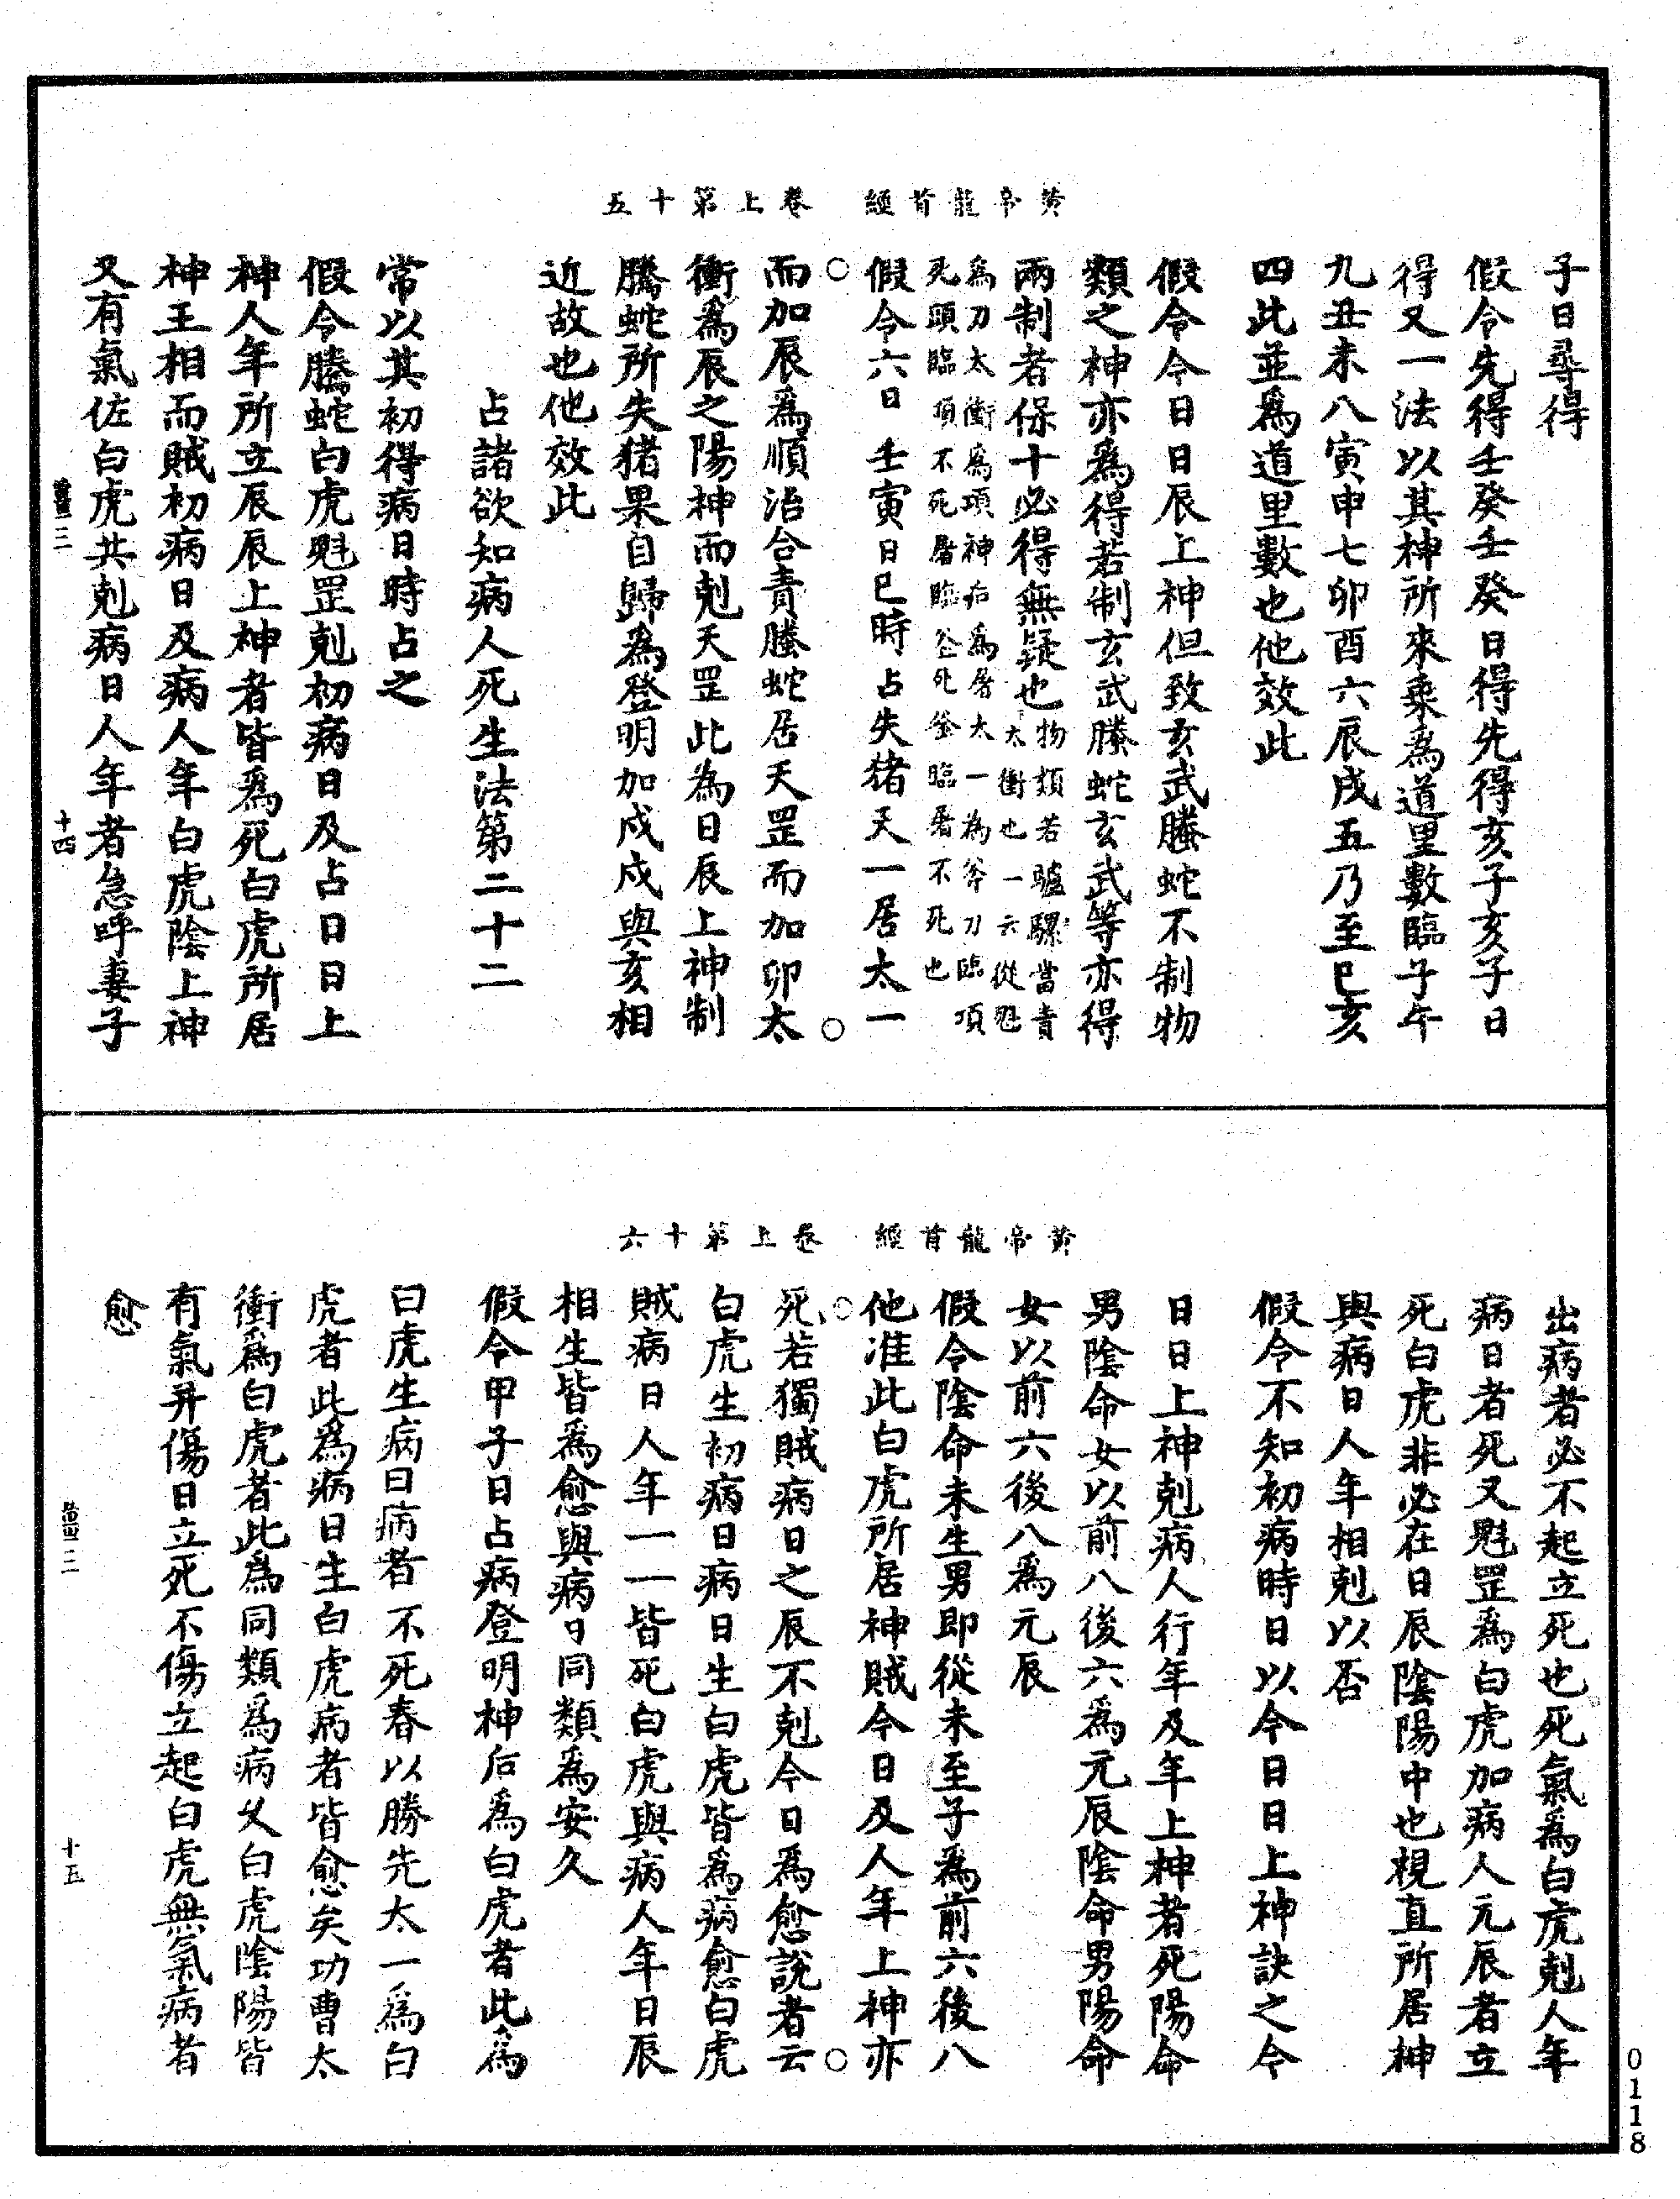 黃帝龍首經　卷上第十五
子日尋得
假令先得壬癸壬癸日得先得亥子亥子日
得又一法以其神所來乘爲道里數臨子午
九丑未八寅申七卯酉六辰戌五乃至巳亥
四此並爲道里數也他效此
假令今日日辰上神但致玄武螣蛇不制物
類之神亦爲得若制玄武螣蛇玄武等亦得
兩制者保十必得無疑也物類若驢騾當責
太衝也一云從魁
爲刀太衝爲項神后爲屠太一為斧刀臨項
死頭臨項不死屠臨釜死釜臨屠不死也
假令六日　壬寅日巳時占失猪天一居太一
而加辰爲順治合責螣蛇居天罡而加卯太
衝爲辰之陽神而剋天罡此為日辰上神制
騰蛇所失猪果自歸爲登明加戌戌與亥相
近故也他效此
占諸欲知病人死生法第二十二
常以其初得病日時占之
假令騰蛇白虎魁罡剋初病日及占日日上
神人年所立辰辰上神者皆爲死白虎所居
神王相而賊初病日及病人年白虎陰上神
又有氣佐白虎共剋病日人年者急呼妻子
薑三　十四
黃帝龍首經　卷上第十六
出病者必不起立死也死氣爲白虎剋人年
病日者死又魁罡爲白虎加病人元辰者立
死白虎非必在日辰陰陽中也視直所居神
與病日人年相剋以否
假令不知初病時日以今日日上神訣之令
日日上神剋病人行年及年上神者死陽命
男陰命女以前八後六爲元辰陰命男陽命
女以前六後八爲元辰
假令陰命未生男即從未至子爲前六後八
他准此白虎所居神賊今日及人年上神亦
死若獨賊病日之辰不剋今日為愈說者云
白虎生初病日病日生白虎皆爲病愈白虎
賊病日人年一一皆死白虎與病人年日辰
相生皆爲愈與病日同類爲安久
假令甲子日占病登明神后爲白虎者此爲
白虎生病日病者不死春以勝先太一爲白
虎者此爲病日生白虎病者皆愈矣功曹太
衝爲白虎者此爲同類爲病久白虎陰陽皆
有氣并傷日立死不傷立起白虎無氣病者
愈
薑二　十五
0118